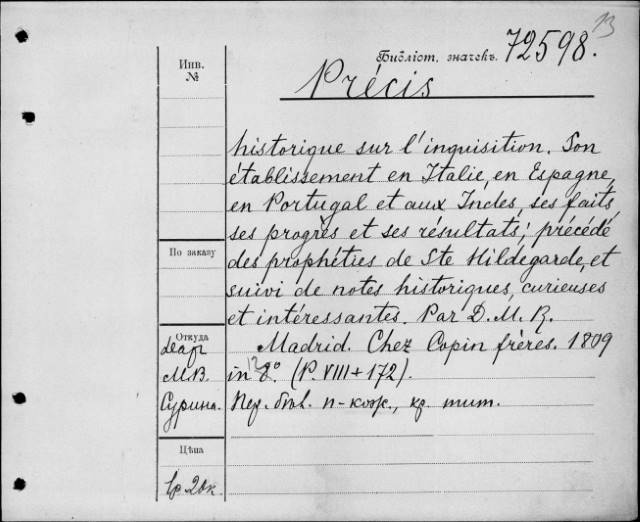 13
Библіот. значекъ. 72598.
Инв.
№
Précis
historique sur l'inquisition. Son
établissement en Italie, en Espagne,
en Portugal et aux Indes, ses faits,
ses progrès et ses résultats; précédé
По заказу
des prophéties de Ste Hildegarde, et
suivi de notes historiques, curieuses
et intéressantes. Par D. M. R.
Откуда
Madrid. Chez Copin frères. 1809
М.В. in 8º. (P. VIII + 172).
12
Сурина. Пер. п-кож., кр. тит.
Цѣна